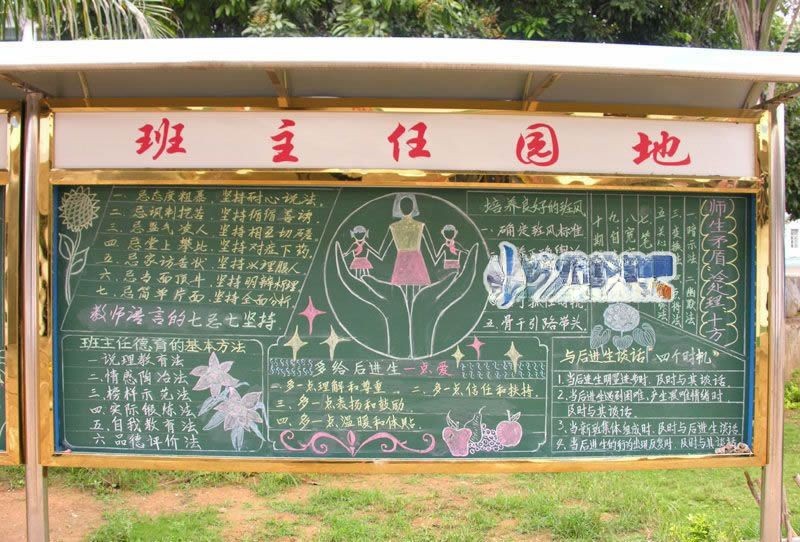 班主任园地
一 忌态度粗暴，坚持耐心说法。
二 忌讽刺挖苦，坚持循循善诱。
三 忌盛气凌人，坚持相互切磋。
四 忌堂上攀比，坚持对症下药。
五 忌家访告状，坚持以理服人。
六 忌当面顶牛，坚持明辨析理。
七 忌简单片面，坚持全面分析。
教师语言的七忌七坚持
班主任德育的基本方法
一 说理教育法
二 情感陶冶法
三 榜样示范法
四 实际锻炼法
五 自我教育法
六 品德评价法
多给后进生一点爱
一、多一点理解和尊重
二、多一点信任和扶持
三、多一点表扬和鼓励
四、多一点温暖和体贴
培养良好的班风
一 确定班风标准
五 骨干引路带头
师生矛盾处理十方
一 对示法
二 幽默法
与后进生谈话"四个时机"
1. 当后进生明显进步时，及时与其谈话。
2. 当后进生遇到困难，产生畏难情绪时
及时与其谈话。
3. 当新班集体组成时，及时与后进生谈话
4. 当后进生的行为出现反复时，及时与其谈话